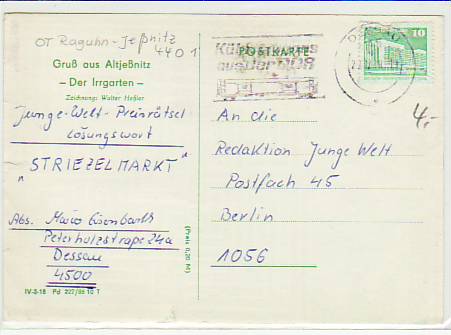 OT Raguhn-Jeßnitz
4401
Gruß aus Altjeßnitz
– Der Irrgarten –
Zeichnung: Walter Heßler
Junge-Welt-Preisrätsel
Lösungswort
"STRIEZELMARKT"
Abs. Mario Eisenbarth
Peterholzstraße 24a
Dessau
4500
IV-2-18 Pd 227/86 10 T
(Preis 0,20 M)
POSTKARTE
aus der DDR
DESSAU
10
4,-
An die
Redaktion Junge Welt
Postfach 45
Berlin
1056